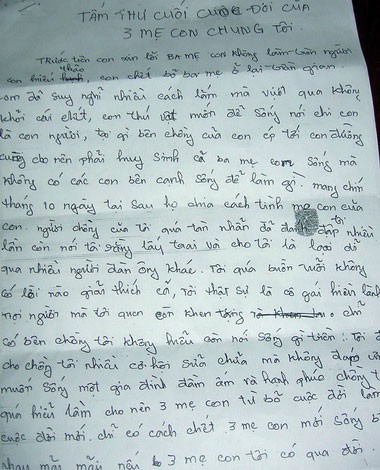 TÂM THƯ CUỐI CUỘC ĐỜI CỦA
3 MẸ CON CHÚNG TÔI
TRƯỚC tiên con xin lỗi BA MẸ con không làm tròn người
con hiếu thảo, con chết bỏ ba mẹ ở lại trần gian.
con đã suy nghĩ nhiều cách lắm mà vượt qua không
khỏi cái chết, con thú vật muốn để sống nói chi con
là con người, tại gì bên chồng của con ép tới con đường
cùng cho nên phải huy sinh cả ba mẹ con sống mà
không có các con bên cạnh sống để làm gì. mang chín
tháng 10 ngày tại sau họ chia cách tình mẹ con của
con. người chồng của tôi quá tàn nhẫn đã đánh đập nhiều
lần còn nói tôi lấy traai và cho tôi là loại đĩ
qua nhiều người đàn ông khác. Tôi quá buồn vì không
có lời nào giải thích cả, tôi thật sự là cô gái hiền lành
mọi người mà tôi quen còn khen tặng chỉ
có bên chồng tôi không hiểu còn nói sống gì tiền. Tôi đã
cho chồng tôi nhiều cơ hội sửa chữa mà không đáp ứng
muốn sống một gia đình đầm ấm và hạnh phúc chồng tôi
quá hiểu lầm cho nên 3 mẹ con từ bỏ cuộc đời làm
cuộc đời mới. chỉ có cách chết 3 mẹ con mới sống bên
nhau mãi mãi nếu 3 mẹ con tôi có qua đời